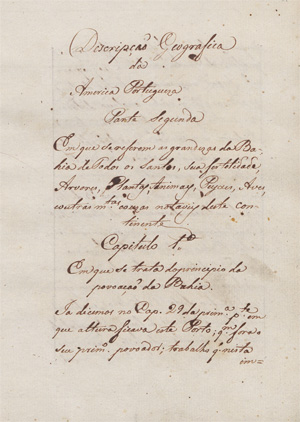 Descripçaõ Geografica
da
America Portugueza
Parte Segunda
Em que se referem as grandezas da Ba-
hia de Todos os Santos, sua fertilidade,
Arvores, Plantas, Animays, Peyxes, Aves,
e outras m.tas couzas notaveis deste con-
tinente
Capitulo 1.º
Em que se trata do principio da
povoaçaõ da Bahia.
Ja dicemos no Cap. 29 da prim.ª p.te em
que altura ficava este Porto; q.m foraõ
seu prim.º povoador; trabalho q. nesta
em=